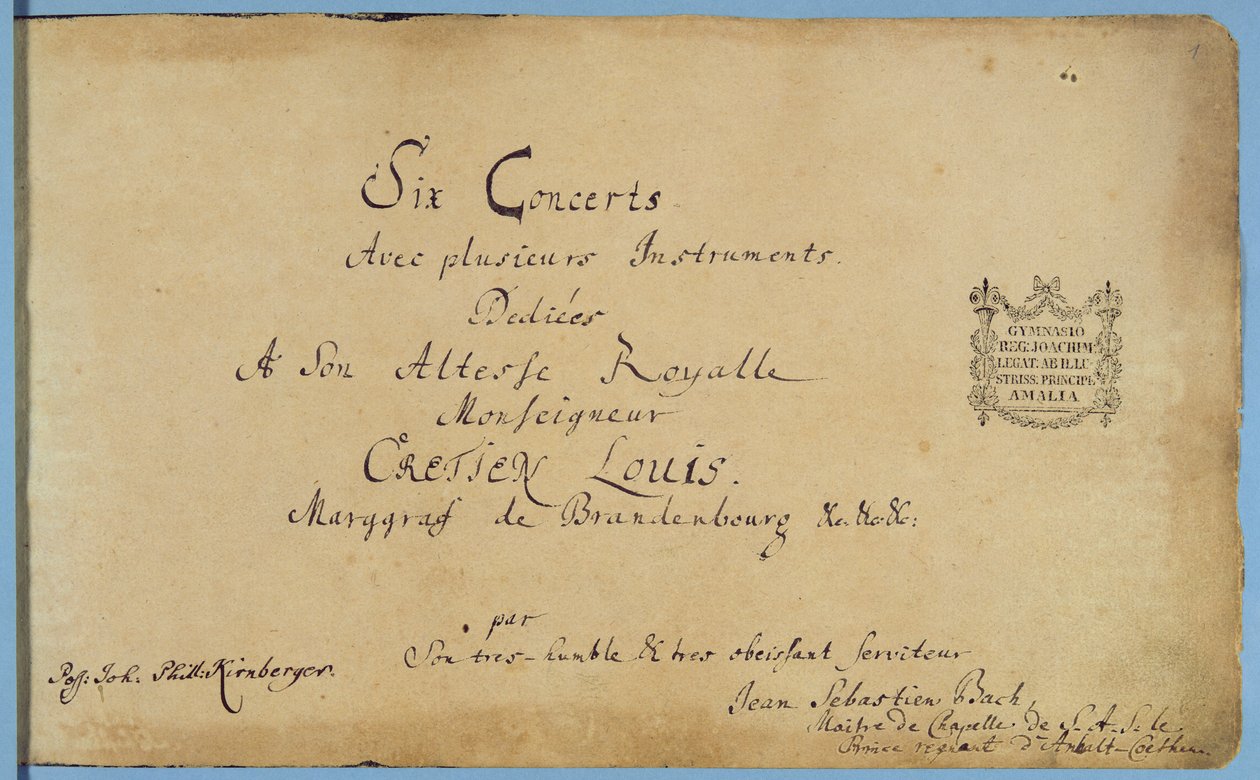 1
Six Concerts
Avec plusieurs Instruments.
Dediées
A Son Altesse Royalle
Monseigneur
CRETIEN Louis.
Marggraf de Brandenbourg &c. &c. &c:
par
Son tres-humble & tres obeissant serviteur
Jean Sebastien Bach,
Maitre de Chapelle de S. A. S. le
Prince regnant d'Anhalt-Coethen.
Poss: Joh: Phill: Kirnberger.
GYMNASIO
REG: JOACHIM:
LEGAT: AB ILLU-
STRISS: PRINCIPE
AMALIA